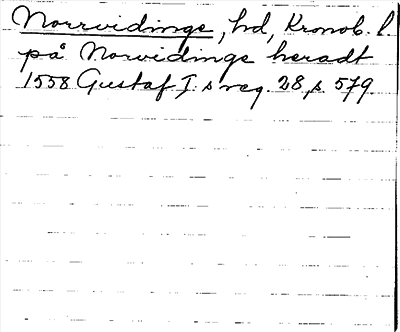 Norrvidinge, hd, Kronob. l.
på Norvidinge heradt
1558 Gustaf I.s reg. 28, s. 579.